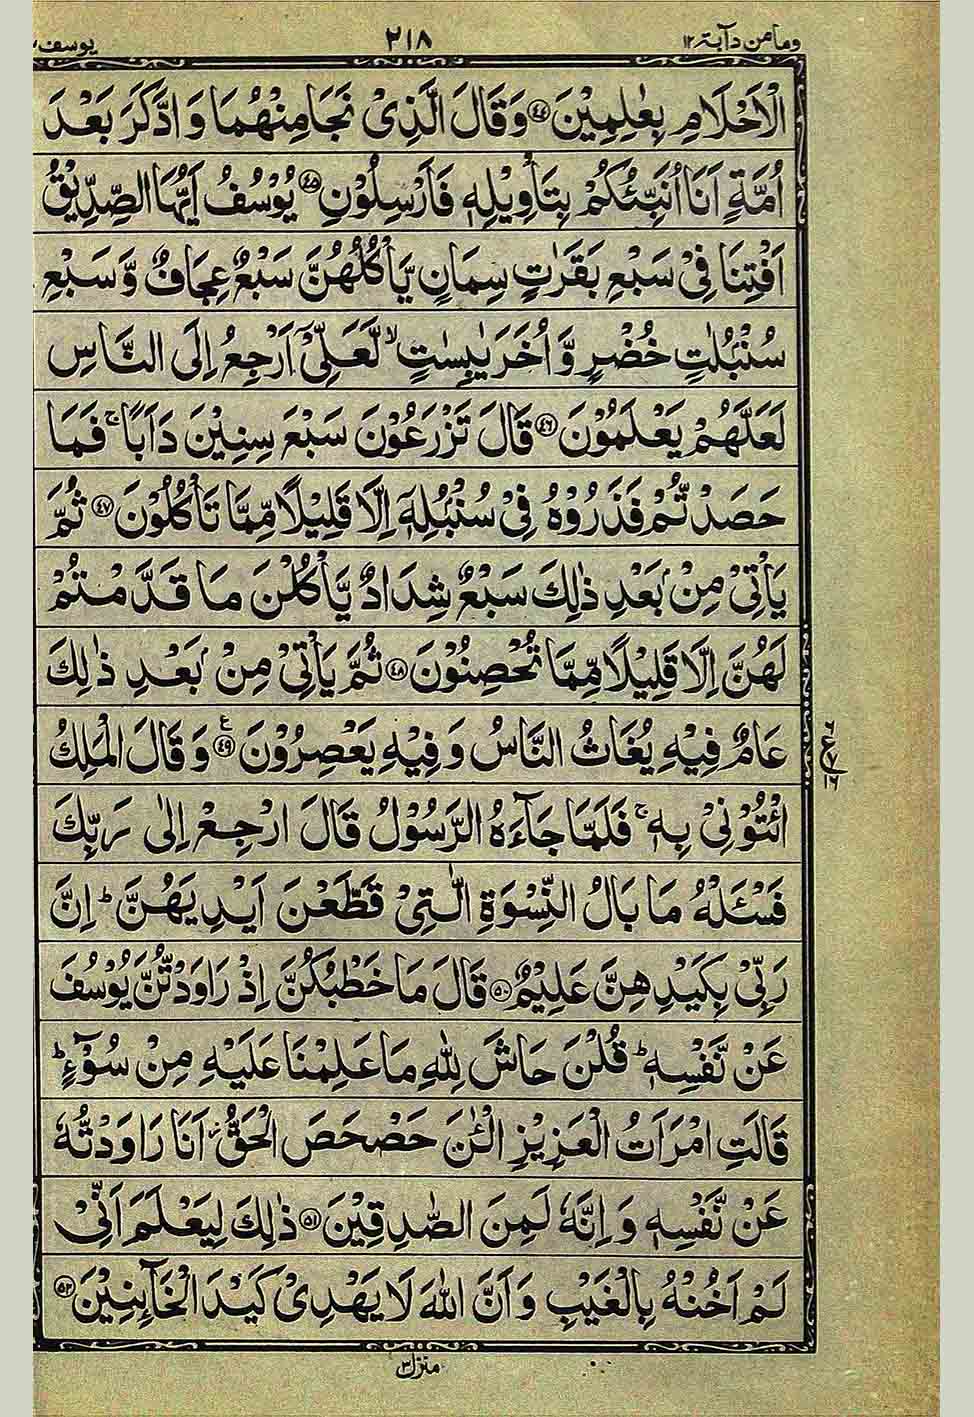 وما من دآبۃ ۱۲ ۲۱۸ یوسف
الْاَحْلَامِ بِعٰلِمِیْنَ ﴿۴۴﴾ وَقَالَ الَّذِیْ نَجَا مِنْهُمَا وَادَّكَرَ بَعْدَ
اُمَّةٍ اَنَا اُنَبِّئُكُمْ بِتَاْوِیْلِهٖ فَاَرْسِلُوْنِ ﴿۴۵﴾ یُوْسُفُ اَیُّهَا الصِّدِّیْقُ
اَفْتِنَا فِیْ سَبْعِ بَقَرٰتٍ سِمَانٍ یَّاْكُلُهُنَّ سَبْعٌ عِجَافٌ وَّ سَبْعِ
سُنْۢبُلٰتٍ خُضْرٍ وَّ اُخَرَ یٰبِسٰتٍ ۙ لَّعَلِّیْۤ اَرْجِعُ اِلَی النَّاسِ
لَعَلَّهُمْ یَعْلَمُوْنَ ﴿۴۶﴾ قَالَ تَزْرَعُوْنَ سَبْعَ سِنِیْنَ دَاَبًا ۚ فَمَا
حَصَدْتُّمْ فَذَرُوْهُ فِیْ سُنْۢبُلِهٖۤ اِلَّا قَلِیْلًا مِّمَّا تَاْكُلُوْنَ ﴿۴۷﴾ ثُمَّ
یَاْتِیْ مِنْۢ بَعْدِ ذٰلِكَ سَبْعٌ شِدَادٌ یَّاْكُلْنَ مَا قَدَّمْتُمْ
لَهُنَّ اِلَّا قَلِیْلًا مِّمَّا تُحْصِنُوْنَ ﴿۴۸﴾ ثُمَّ یَاْتِیْ مِنْۢ بَعْدِ ذٰلِكَ
عَامٌ فِیْهِ یُغَاثُ النَّاسُ وَ فِیْهِ یَعْصِرُوْنَ ﴿۴۹﴾ ع وَ قَالَ الْمَلِكُ
ائْتُوْنِیْ بِهٖ ۚ فَلَمَّا جَآءَهُ الرَّسُوْلُ قَالَ ارْجِعْ اِلٰی رَبِّكَ
فَسْـَٔلْهُ مَا بَالُ النِّسْوَةِ الّٰتِیْ قَطَّعْنَ اَیْدِیَهُنَّ ؕ اِنَّ
رَبِّیْ بِكَیْدِهِنَّ عَلِیْمٌ ﴿۵۰﴾ قَالَ مَا خَطْبُكُنَّ اِذْ رَاوَدْتُّنَّ یُوْسُفَ
عَنْ نَّفْسِهٖ ؕ قُلْنَ حَاشَ لِلّٰهِ مَا عَلِمْنَا عَلَیْهِ مِنْ سُوْٓءٍ ؕ
قَالَتِ امْرَاَتُ الْعَزِیْزِ الْـٰٔنَ حَصْحَصَ الْحَقُّ ۫ اَنَا رَاوَدْتُّهٗ
عَنْ نَّفْسِهٖ وَ اِنَّهٗ لَمِنَ الصّٰدِقِیْنَ ﴿۵۱﴾ ذٰلِكَ لِیَعْلَمَ اَنِّیْ
لَمْ اَخُنْهُ بِالْغَیْبِ وَ اَنَّ اللّٰهَ لَا یَهْدِیْ كَیْدَ الْخَآئِنِیْنَ ﴿۵۲﴾
منزل ۳